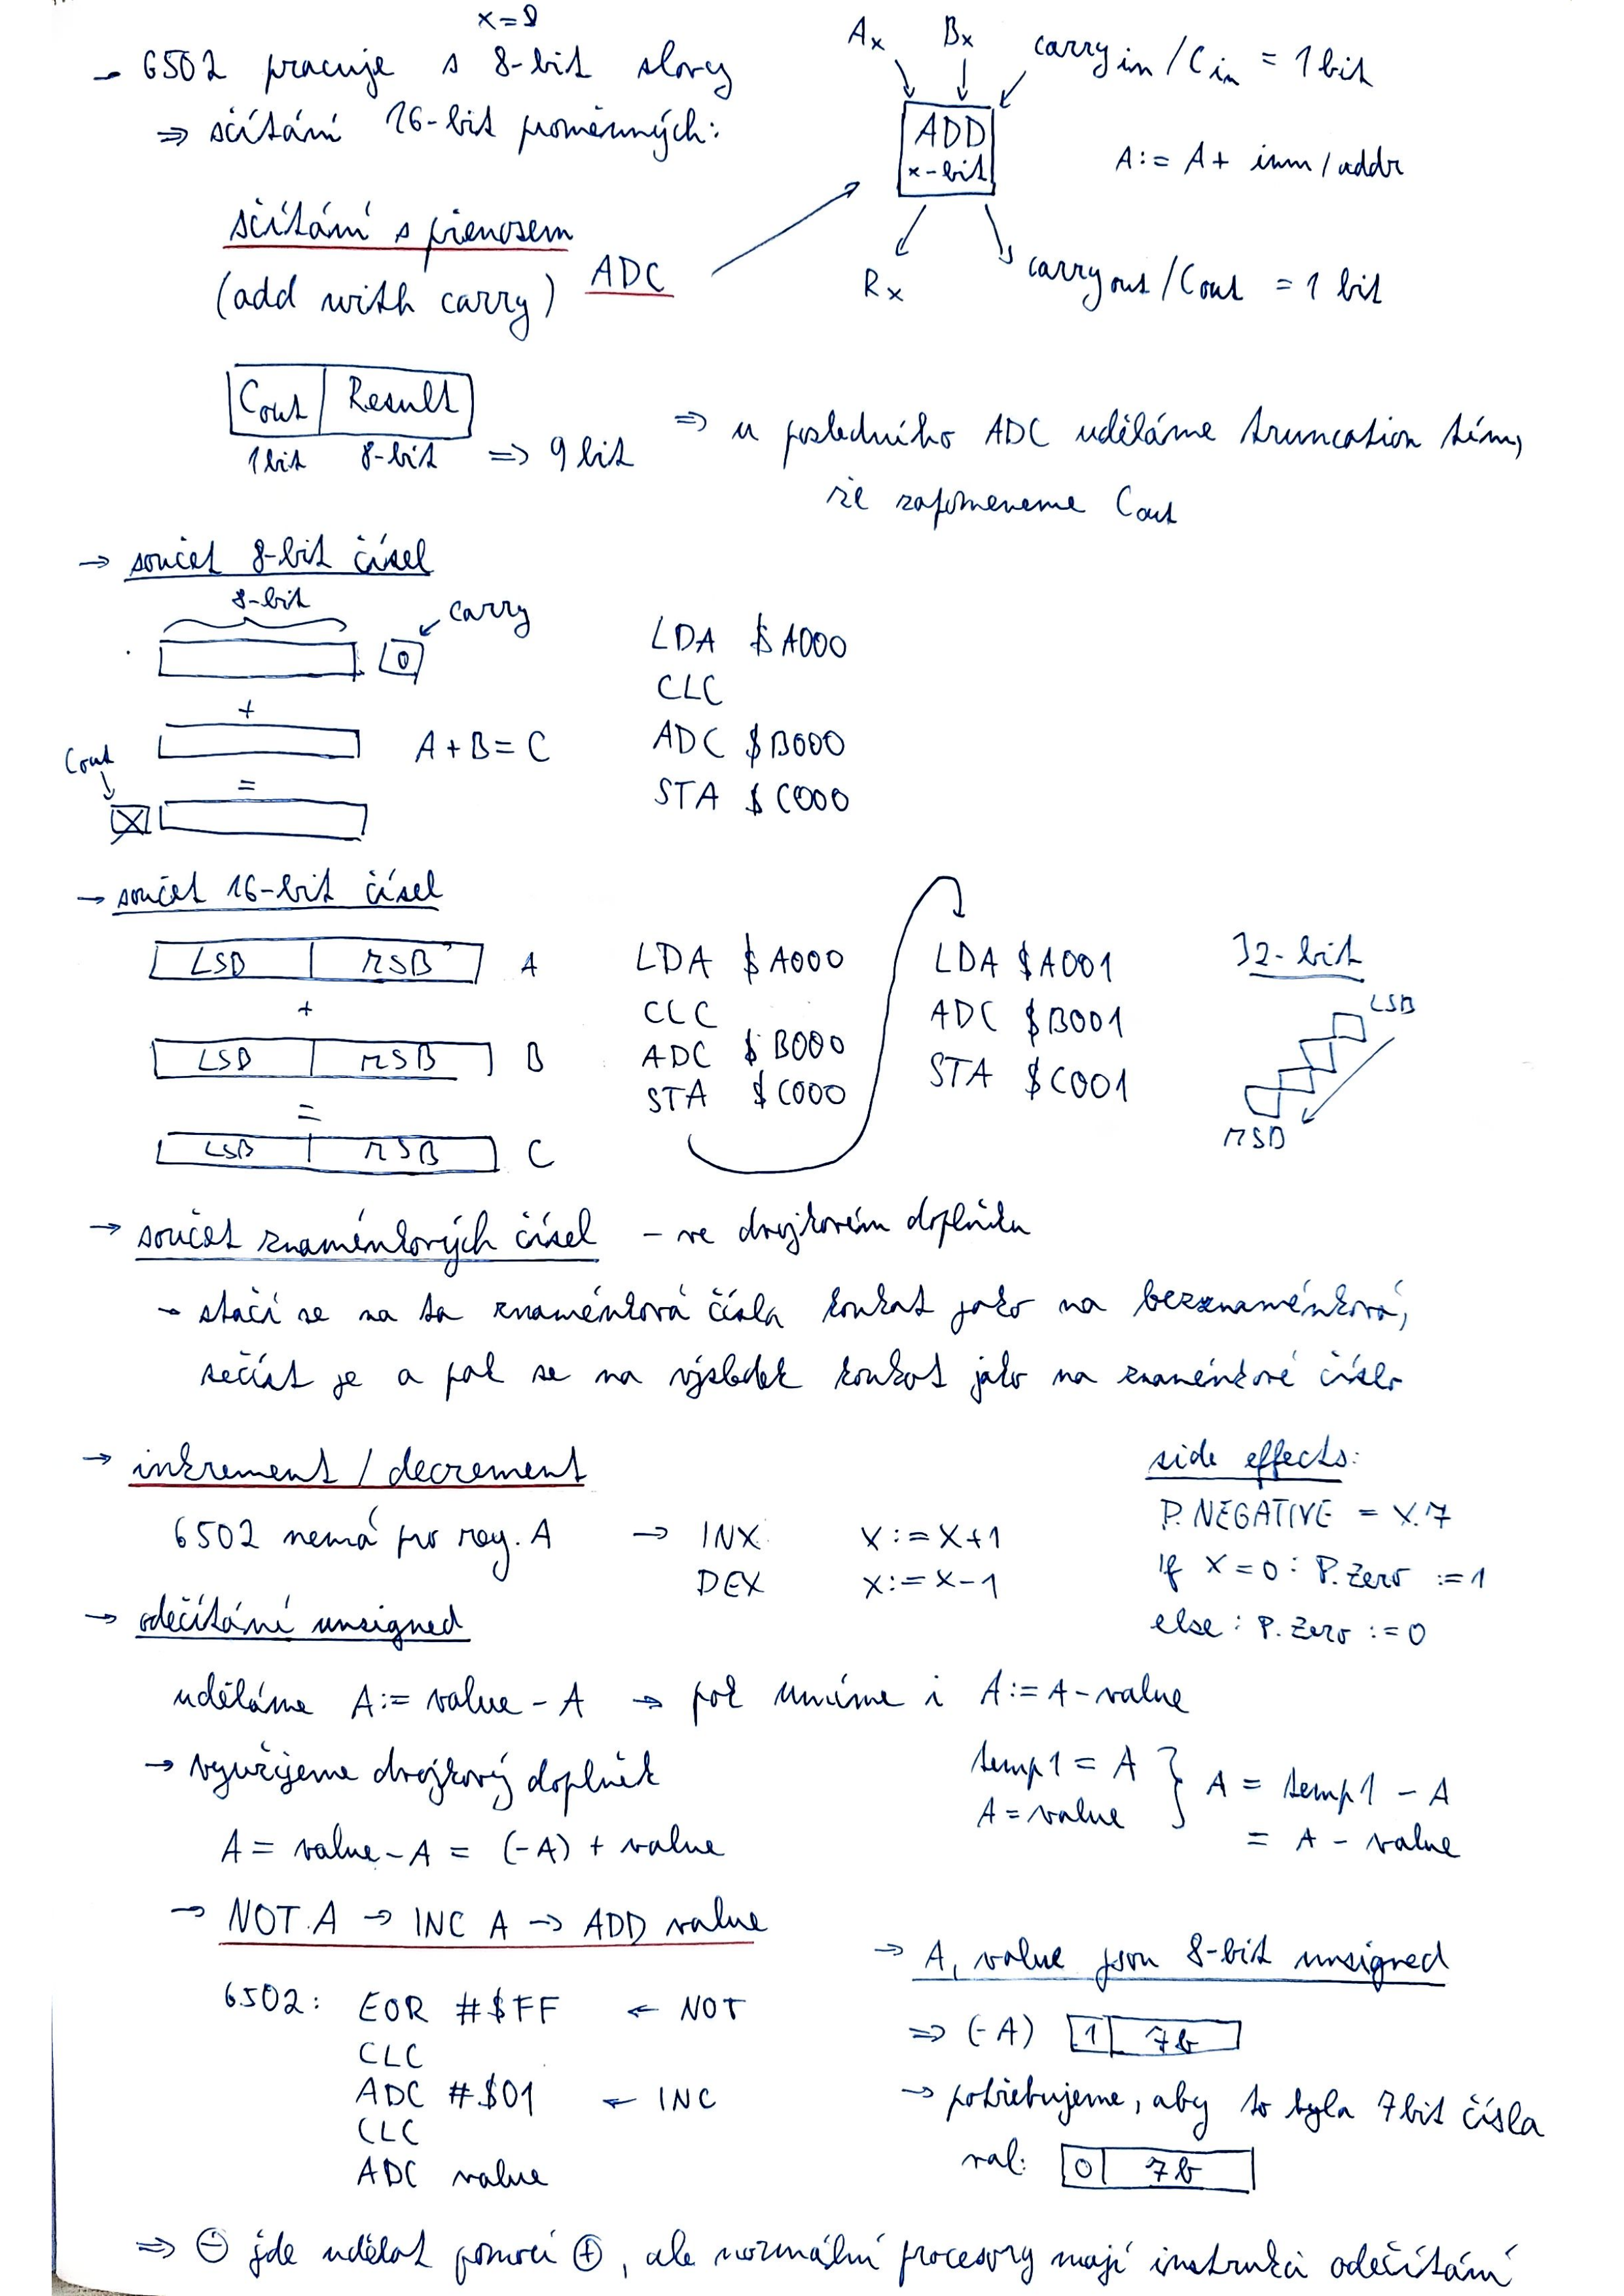 x=8
- 6502 pracuje s 8-bit slovy
⇒ sčítání 16-bit proměnných:
Ax Bx carry in / Cin = 1 bit
ADD
x-bit
A := A + imm / addr
Rx
carry out / Cout = 1 bit
sčítání s přenosem
(add with carry) ADC
Cout | Result
1 bit 8-bit ⇒ 9 bit
⇒ u posledního ADC uděláme truncation tím,
že zapomeneme Cout
→ součet 8-bit čísel
8-bit
carry
0
+
Cout
A + B = C
=
LDA $A000
CLC
ADC $B000
STA $C000
→ součet 16-bit čísel
LSB | MSB A
+
LSB | MSB B
=
LSB | MSB C
LDA $A000
CLC
ADC $B000
STA $C000
LDA $A001
ADC $B001
STA $C001
32-bit
LSB
MSB
→ součet znaménkových čísel - ve dvojkovém doplňku
- stačí se na ta znaménková čísla koukat jako na bezznaménková,
sečíst je a pak se na výsledek koukat jako na znaménkové číslo
→ inkrement / decrement
6502 nemá pro reg. A → INX X := X+1
DEX X := X-1
side effects:
P.NEGATIVE = X.7
If X = 0 : P.Zero := 1
else : P.Zero := 0
→ odečítání unsigned
uděláme A := value - A → pak umíme i A := A - value
→ využijeme dvojkový doplněk
A = value - A = (-A) + value
temp1 = A
A = value
} A = temp1 - A
= A - value
→ NOT A → INC A → ADD value
6502: EOR #$FF ← NOT
CLC
ADC #$01 ← INC
CLC
ADC value
→ A, value jsou 8-bit unsigned
⇒ (-A) 1 | 7b
→ potřebujeme, aby to byla 7bit čísla
val: 0 | 7b
⇒ ⊖ jde udělat pomocí ⊕, ale normální procesory mají instrukci odečítání